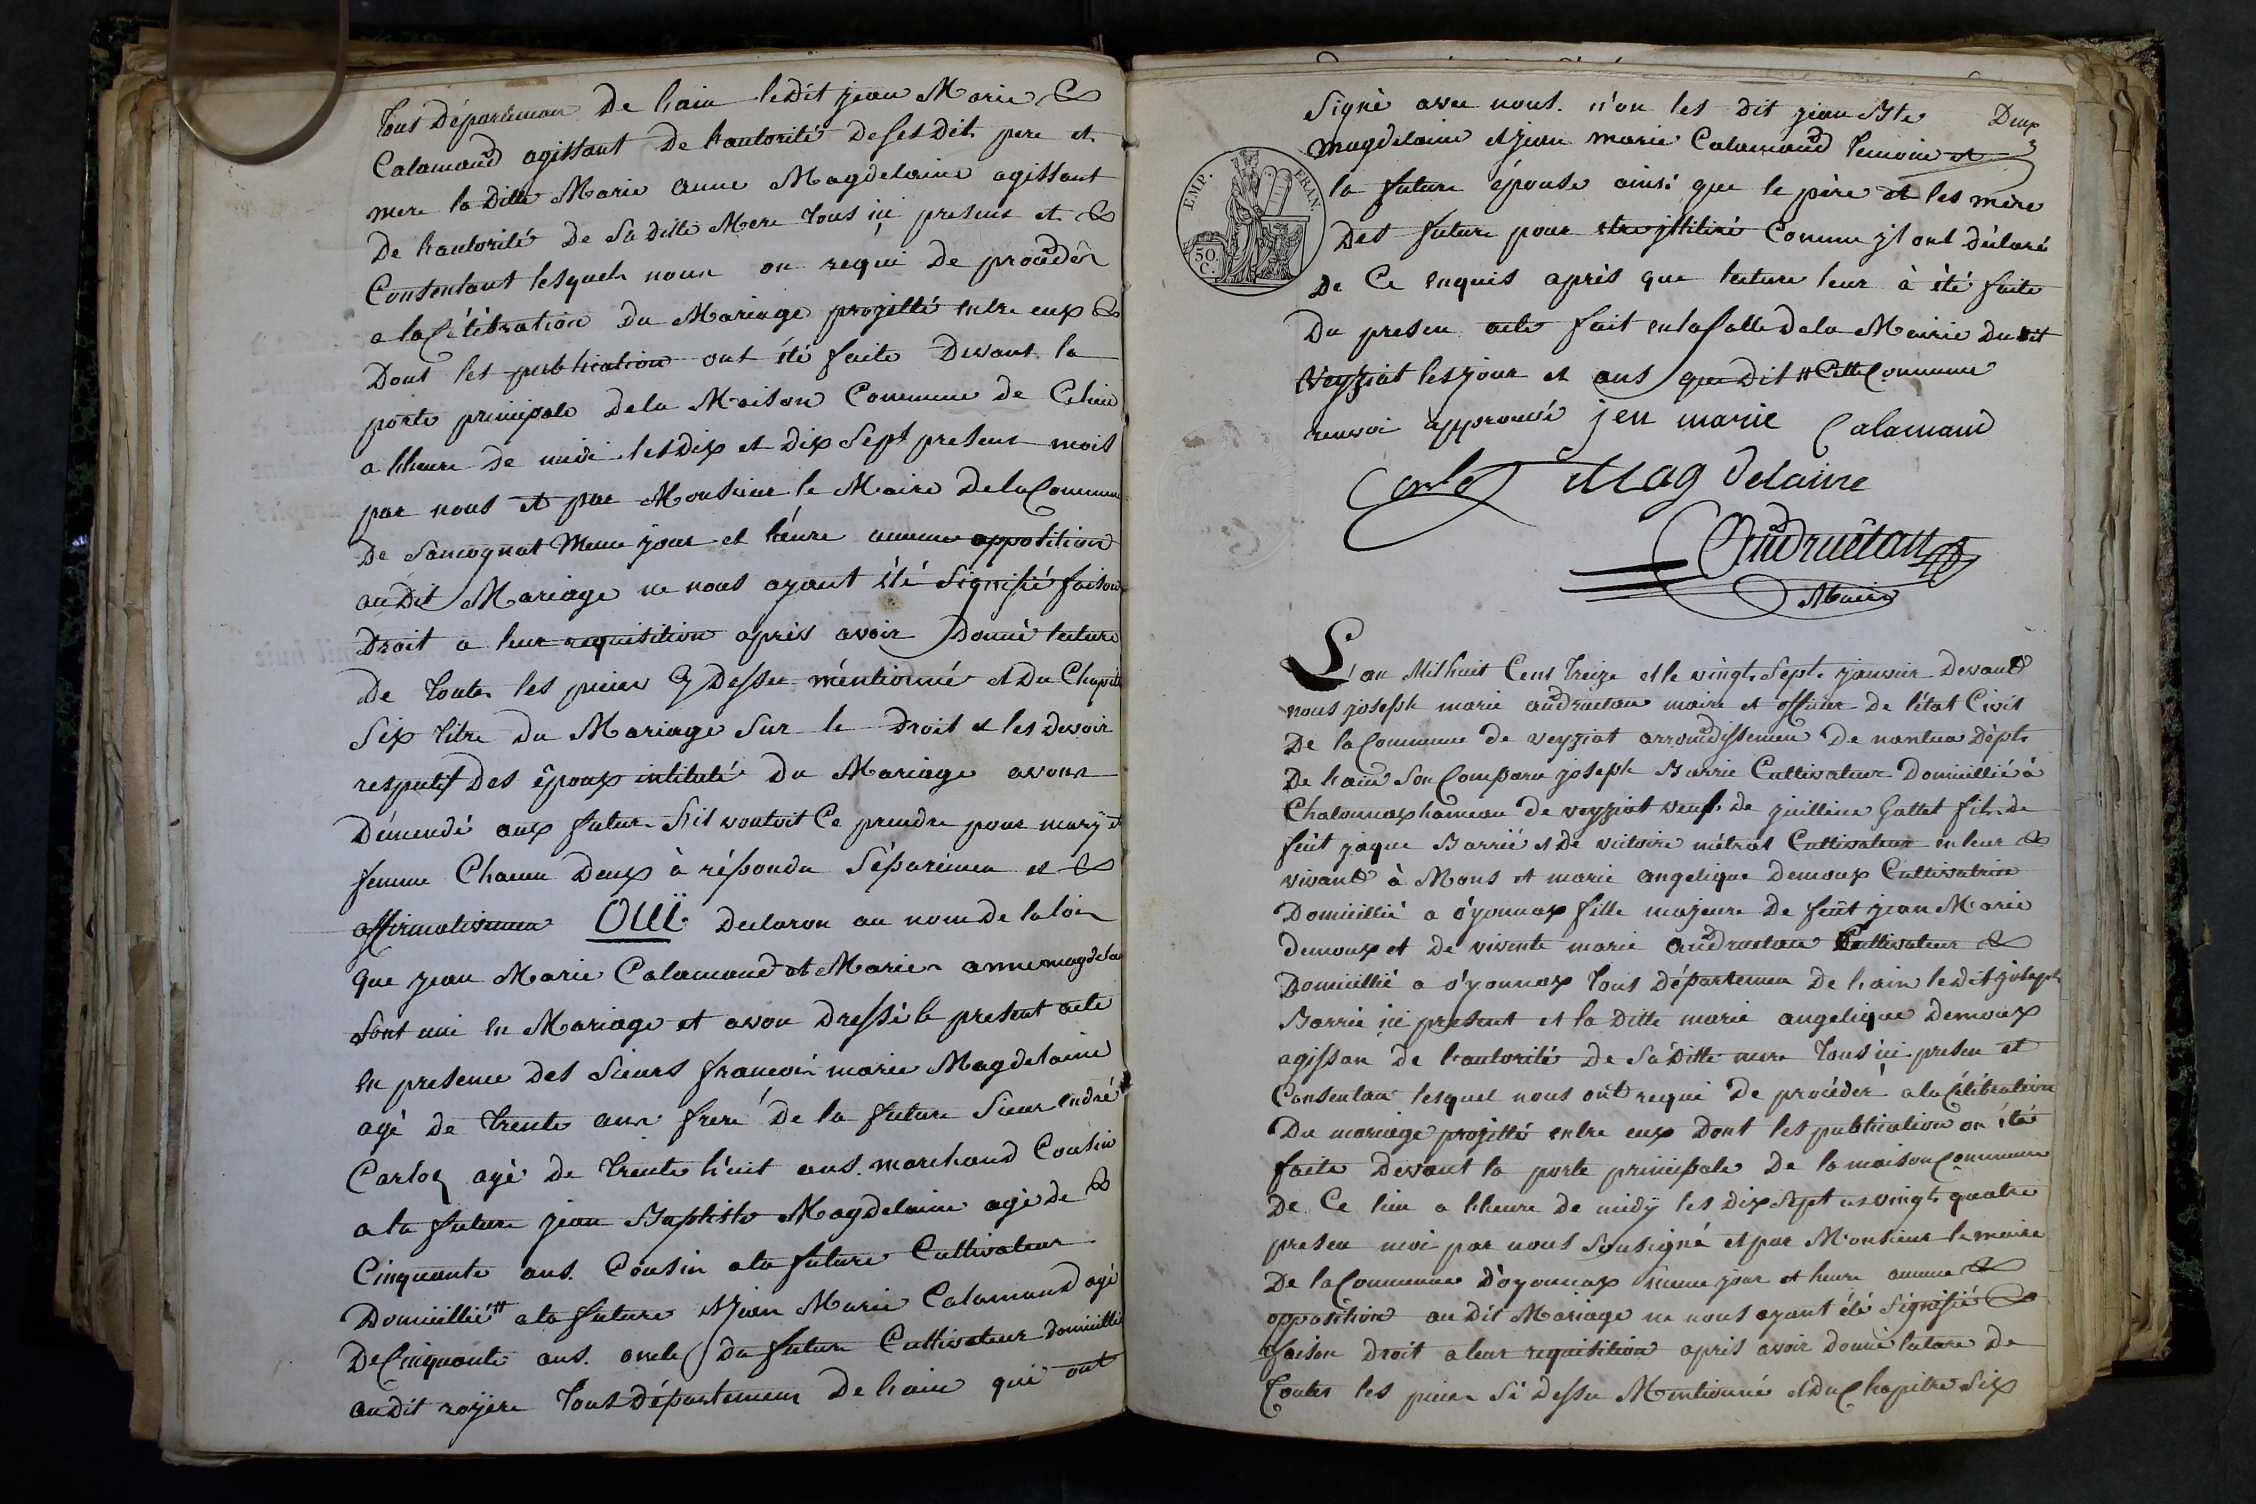 tous Département De l'ain ledit jean Marie &
Calamaud agissant De l'autorité Deses Dit pere et
mere la Ditte Marie anne Magdelaine agissant
De l'autorité De Sa ditte Mere tous ici presens et &
Consentant lesquels nous on requi De procéder
a la Célébration Du Mariage projetté entre eux &
Dont les publication ont été faite Devant la
porte principale Dela Maison Commune de Celieu
a lheure De midi les Dix et Dix Sept present mois
par nous et par Monsieur le Maire Dela Commune
De Samognat Meme jour et heure aucune opposition
audit Mariage ne nous ayant été Signifié faison
Droit a leur requisition après avoir Donné lecture
De toutes les pieces Cy Dessu mentionné et Du Chapitre
Six titre Du Mariage Sur le Droit et les Devoir
respectif Des époux intitulé Du Mariage avons
Démendé aux futur S'il vouloit Ce prendre pour mary et
femme Chacun Deux à réponda Séparémen et &
affirmativemen OUI Declaron au nom de la loi
Que jean Marie Calamaud et Marie anne magdelai
Sont uni en Mariage et avon Dressé le present acte
en presence Des Sieurs francoi marie Magdelaine
agé de trente ans frere De la future Sieur endré
Carloz agé de trente h'uit ans marchand Cousin
a la future jean Baptiste Magdelaine agé de &
Cinquante ans Cousin a la future Cultivateur
Domicillié # a la future et jean Marie Calamaud agé
De Cinquante ans oncle Du future Cultivateur domicillié
audit royère tous Département De l'ain qui ont
Signé avec nous n'on les Dit jean Bte Deux
magdelaine et jean marie Calamaud temoin et
la future épouse ainsi que le père et les mère
Des future pour etre jllitiré Comme jl ont déclaré
De Ce enquis après que lecture leur à été faite
Du presen acte fait en la Salle de la Mairie Dudit
Veyziat les jour et ans que Dit # Cette Commune
renvoi approuvé jen marie Calamaud
EMP. FRAN.
50 C.
Carloz Mag delaine
Andruétan
Maire
L'an Mil huit Cent treize et le vingt Sept janvier Devand
nous joseph marie andruetan maire et officier De l'état Civil
De la Commune de veyziat arrondissemen De nantua Dépt.
De l'ain Son Comparu joseph Barrié Cultivateur Domicillié à
Chatonnax hameau De veyziat veuf De juilliene Gallet fils de
feût jaque Barrié et De victoire métral Cultivateur en leur &
vivand à Mons et marie angelique demoux Cultivatrice
Domicillié a o'yonnax fille majeure De feût jean Marie
demoux et de vivente marie andruetan Cultivateur &
Domicillié a o'yonnax tous département De l'ain ledit joseph
Barrié ici present et la Ditte marie angelique Demoux
agissan De l'autorité De Sa Ditte mere tous ici presen et
Consentan lesquel nous ont requi De procéder a la Célébration
Du mariage projetté entre eux Dont les publication on été
faite Devant la porte principale De la maison Commune
De Ce lieu a lheure De midy les Dix Sept et vingt quatre
presen moi par nous Sousigné et par Monsieur le maire
De la Commune D'oyonnax meme jour et heure aucune &
opposition au Dit Mariage ne nous ayant été Signifié &
faison Droit a leur requisition après avoir Donné lecture De
Toutes les pieces Si Dessu Mentionné et Du Chapitre Six